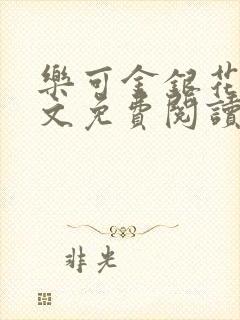 樂可金銀花
文免費閱讀
非光